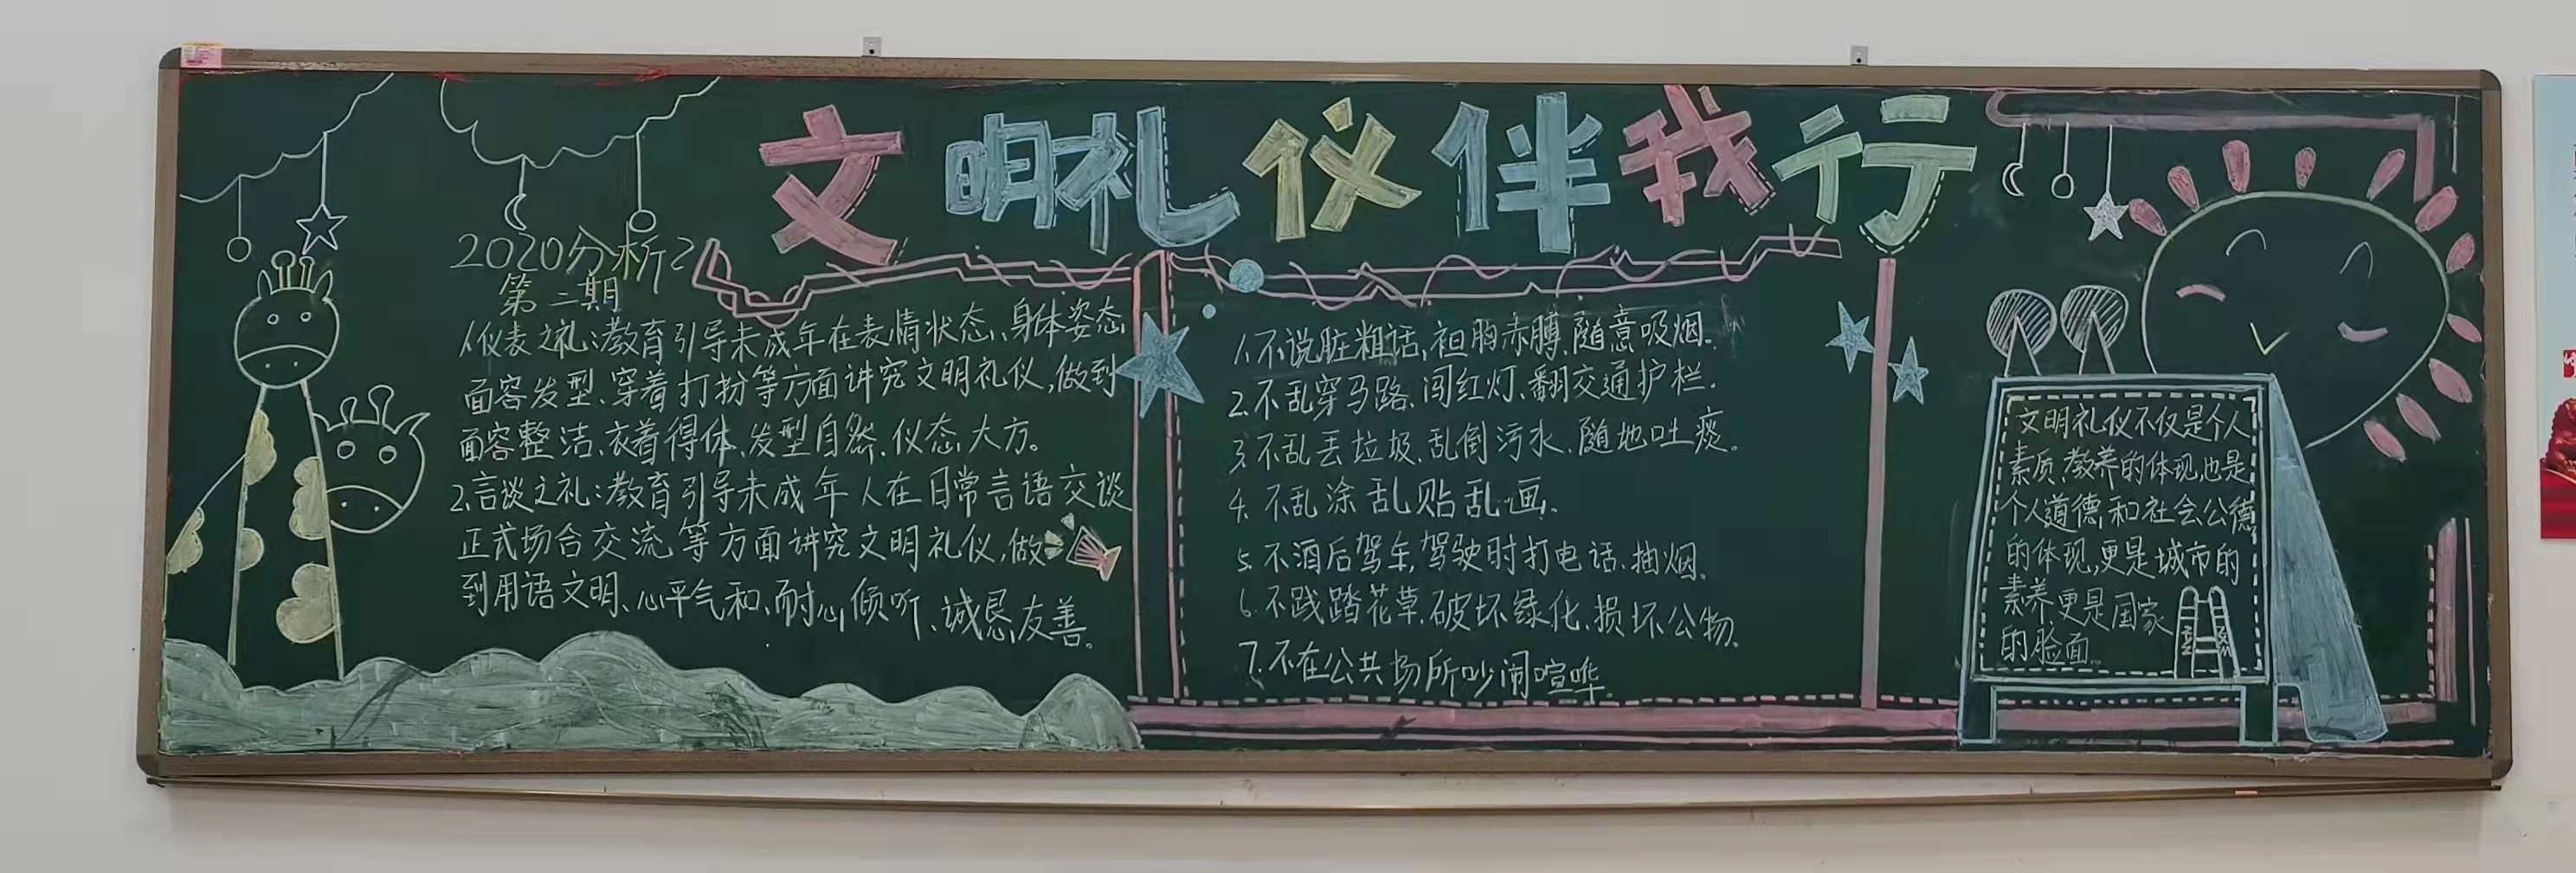 文明礼仪伴我行
2020分析2
第二期
1.仪表之礼:教育引导未成年在表情状态、身体姿态
面容发型、穿着打扮等方面讲究文明礼仪,做到
面容整洁、衣着得体、发型自然、仪态大方。
2.言谈之礼:教育引导未成年人在日常言语交谈
正式场合交流等方面讲究文明礼仪,做
到用语文明、心平气和、耐心倾听、诚恳友善。
1.不说脏粗话,袒胸赤膊,随意吸烟。
2.不乱穿马路、闯红灯、翻交通护栏.
3.不乱丢垃圾、乱倒污水、随地吐痰。
4.不乱涂乱贴乱画。
5.不酒后驾车,驾驶时打电话、抽烟.
6.不践踏花草、破坏绿化、损坏公物.
7.不在公共场所吵闹喧哗.
文明礼仪不仅是个人
素质、教养的体现,也是
个人道德和社会公德
的体现,更是城市的
素养,更是国家
的脸面.